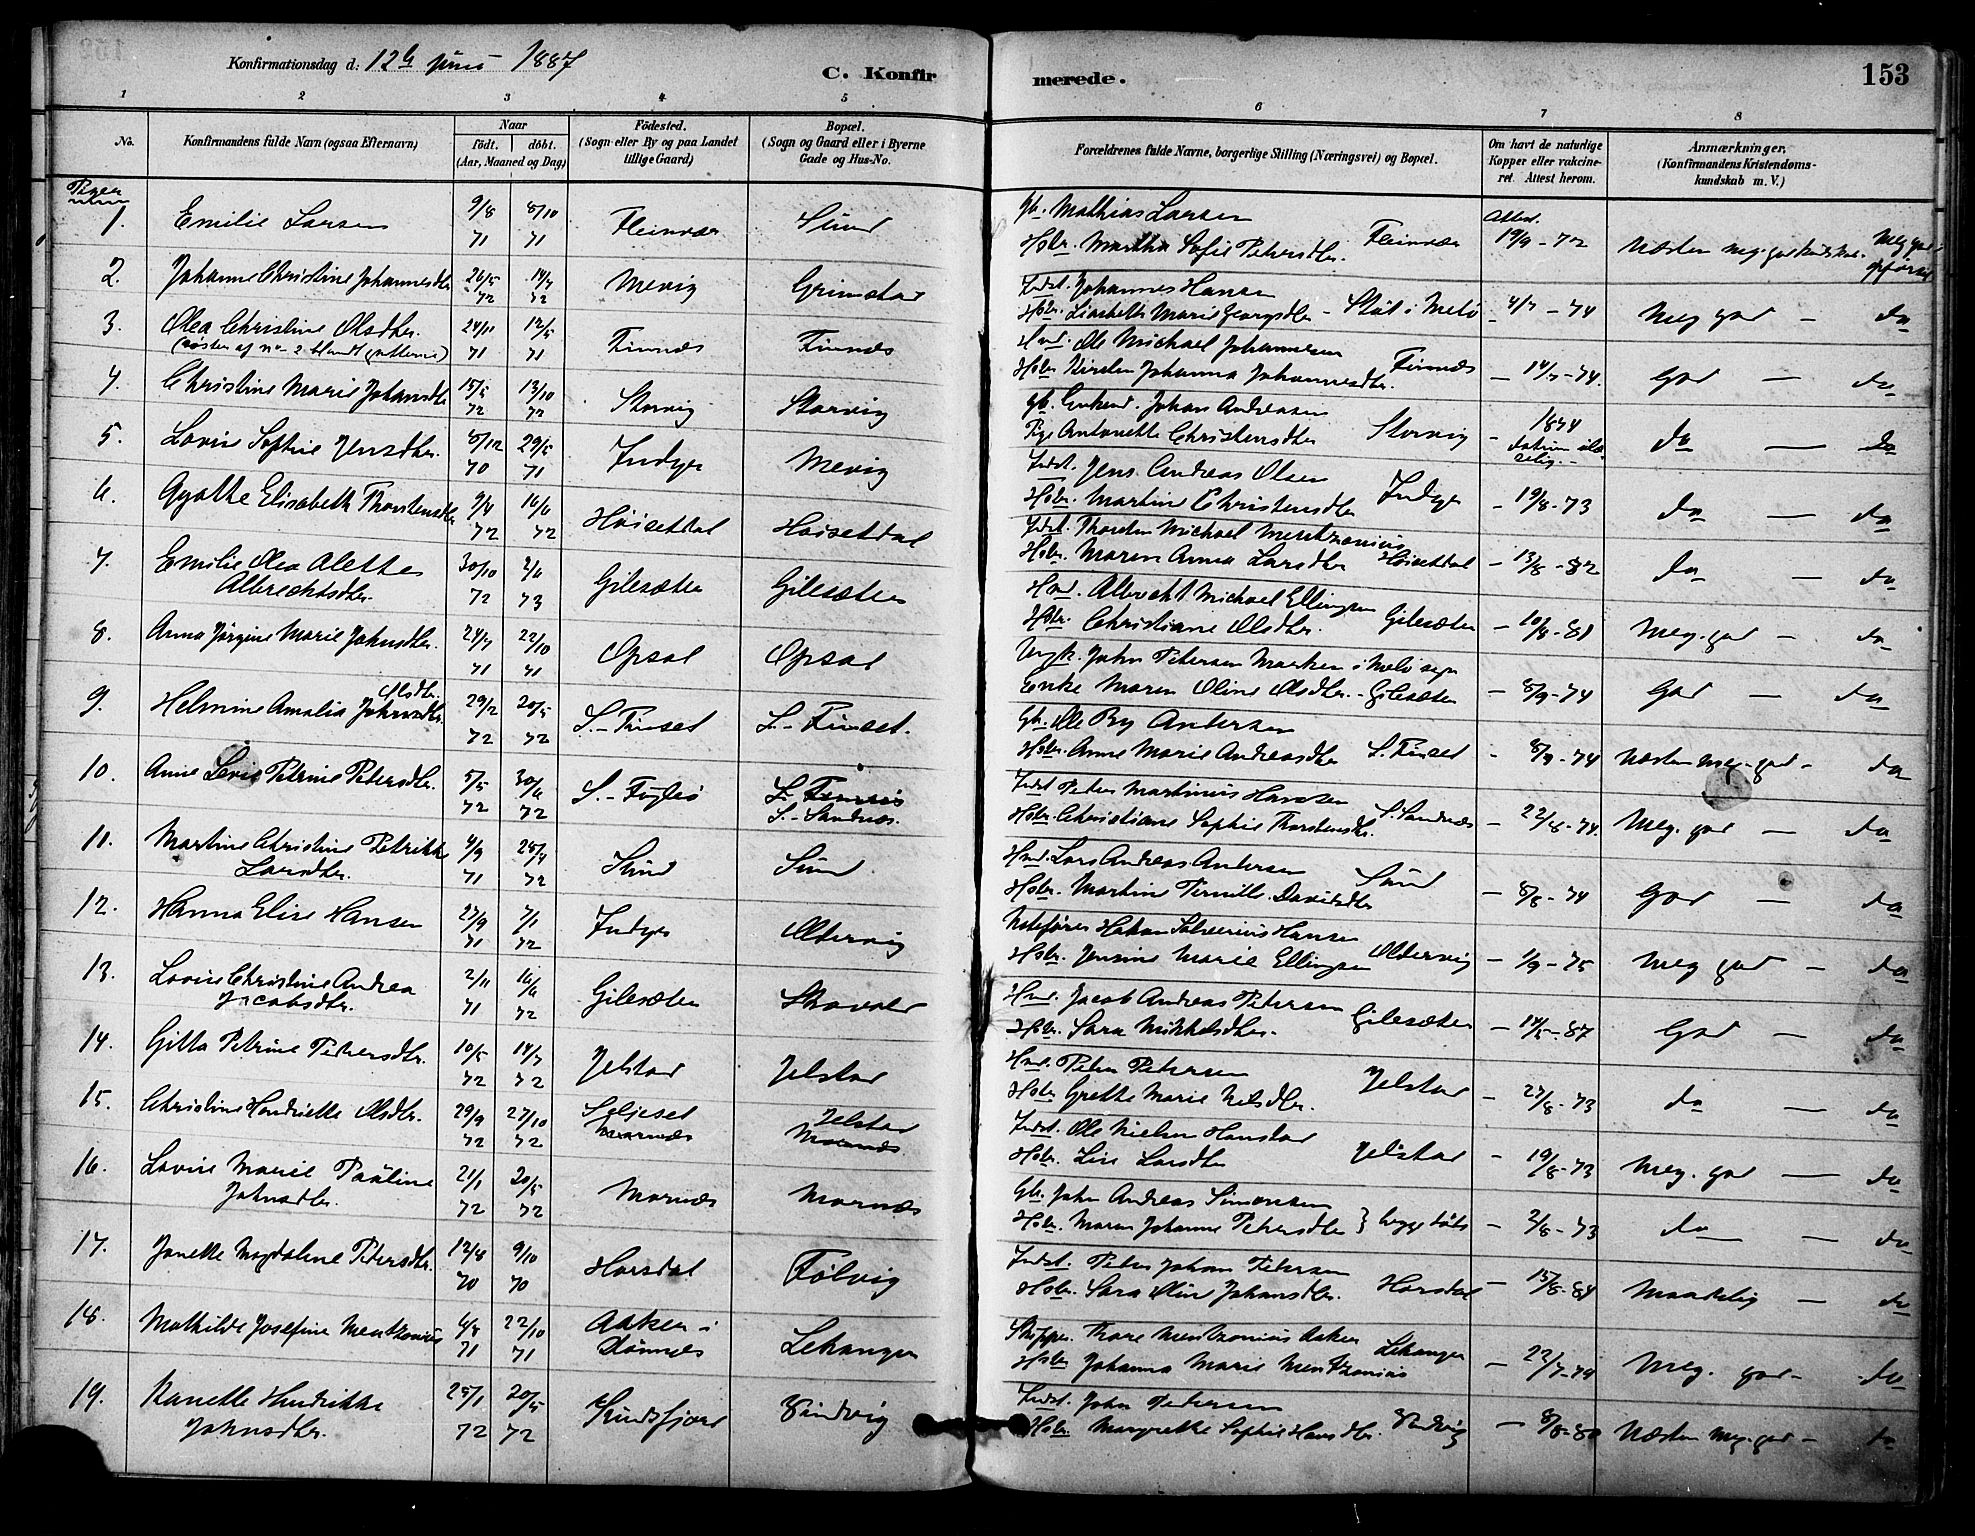 Konfirmationsdag d: 12te Juni 1887
C. Konfirmerede. 153
1 2 3 4 5 6 7 8
No. Konfirmandens fulde Navn (ogsaa Efternavn) Naar födt. döbt. (Aar, Maaned og Dag) Födested. (Sogn eller By og paa Landet tillige Gaard) Bopæl. (Sogn og Gaard eller i Byerne Gade og Hus-No. Forældrenes fulde Navne, borgerlige Stilling (Næringsvei) og Bopæl. Om havt de naturlige Kopper eller vakcineret. Attest herom. Anmærkninger. (Konfirmandens Kristendomskundskab m. V.)
1. Emilie Larsen 9/8 71 8/10 71 Fleinvær Sund Gb. Mathias Larsen
Hstr. Martha Sofie Petersdtr. Fleinvær Attest. 19/9-72 Næsten meg. god kundskab.
2. Johanne Christine Johannesdtr 26/5 72 14/7 72 Mevig Grimstad Indst. Johannes Hansen
Hstr. Lisabeth Marie Georgsdtr - Støt i Melø 4/7-74 Meg. god - do
3. Olea Christine Olsdtr. 24/11 71 12/5 71 Finnes Finnes Hmd. Ole Michael Johannesen
Hstr. Kirsten Johanna Johannesdtr. Finnes - 14/7-74. God - do
4. Christine Marie Johansdtr 15/5 72 13/10 72 Storvig Storvig Johan Andreasen
Pige Antonette Christensdtr Storvig - 1874 do - do
5. Lovise Sophie Jensdtr. 8/12 70 29/5 71 Indyr Mevig Indst. Jens Andreas Olsen
Hstr. Martine Christensdtr Indyr - 19/8-73 do - do
6. Agathe Elisabeth Thorstensdtr 9/4 72 16/6 72 Høisetdal Høisetdal Indst. Thorsten Michael Mentzonius
Hstr. Maren Anna Larsdtr Høisetdal - 13/8-82 do - do
7. Emilie Olea Alette 30/10 72 2/6 73 Gilesæter Gilesæter Hmd. Albrecht Michael Ellingsen
Albrechtsdtr. Hstr. Christiane Olsdtr. Gilesæter - 10/8-81 Meg. god - do
8. Anna Jørgine Marie Johnsdtr. 24/7 71 22/10 71 Opsal Opsal Ungk. John Petersen Marken i Melø sogn
Enke Maren Oline Olsdtr. - Gilesæter - 8/9-74 God - do
9. Helmine Amalia Olsdtr. 29/2 72 20/5 72 S. - Finset S. - Finset. Gb. Ole By Andersen
Hstr. Anne Marie Andreasdtr S. Finset - 8/9-74 Næsten meg. god - do
10. Anne Lovise Petrine Petersdtr. 5/5 72 30/6 72 S. - Fuglø S. - Sandnes. Indst Peter Martinus Hansen
Hstr. Christiane Sophie Thorstensdtr. S. Sandnes - 22/8-74. Meg. god - do
11. Martine Christine Petrikke 4/9 71 28/4 72 Sund Sund Hmd. Lars Andreas Andersen
Larsdtr. Hstr. Martine Pernille Davidsdtr Sund - 8/8-74 God - do
12. Hanna Elise Hansen 27/9 71 7/1 72 Indyr Oldervig Notefører Hakon Silverius Hansen
Hstr. Jensine Marie Ellingsen Oldervig - 1/9-75 Meg god - do
13. Lovise Christine Andrea 2/11 71 16/6 72 Gilesæter Skavold Hmd. Jacob Andreas Petersen
Jacobsdtr. Hstr. Sara Mikkelsdtr. Gilesæter - 14/5-87 God - do
14. Gitta Petrine Petersdtr. 10/5 72 14/7 72 Jelstad Jelstad Hmd. Peter Petersen
Hstr. Grethe Marie Nelsdtr. Jelstad - 27/8-73 do - do
15. Christine Hendriette Olsdtr. 29/9 72 27/10 72 Seljeset Jelstad Indst. Ole Nielsen Hanstad
Mornæs Mornæs Hstr. Lise Larsdtr Jelstad - 19/8-73 Meg. god - do
16. Lovise Marie Pauline 21/1 72 20/5 72 Mornæs Mornæs Gb. John Andreas Simonsen
Johnsdtr. Hstr. Maren Johanne Petersdtr } begge døde - 2/8-73 do - do
17. Janette Magdalene Petersdtr. 12/4 70 9/10 70 Horsdal Følvig Indst. Peter Johan Petersen
Hstr. Sara Oline Johansdtr. Horsdal - 15/8-84 Maadelig - do
18. Mathilde Josefine Mentzonius 4/8 71 22/10 71 Aaker i Dønnes Lekanger Skipper Thore Mentzonius Aaker
Hstr Johanna Marie Mentzonius Lekanger - 22/7-74 Meg. god - do
19. Nanette Hendrikke 25/1 72 20/5 72 Sundsfjord Vindvig Indst. John Petersen
Johnsdtr. Hstr. Margrethe Sophie Hansdtr. Vindvig - 8/8-80 Næsten meg. god - do